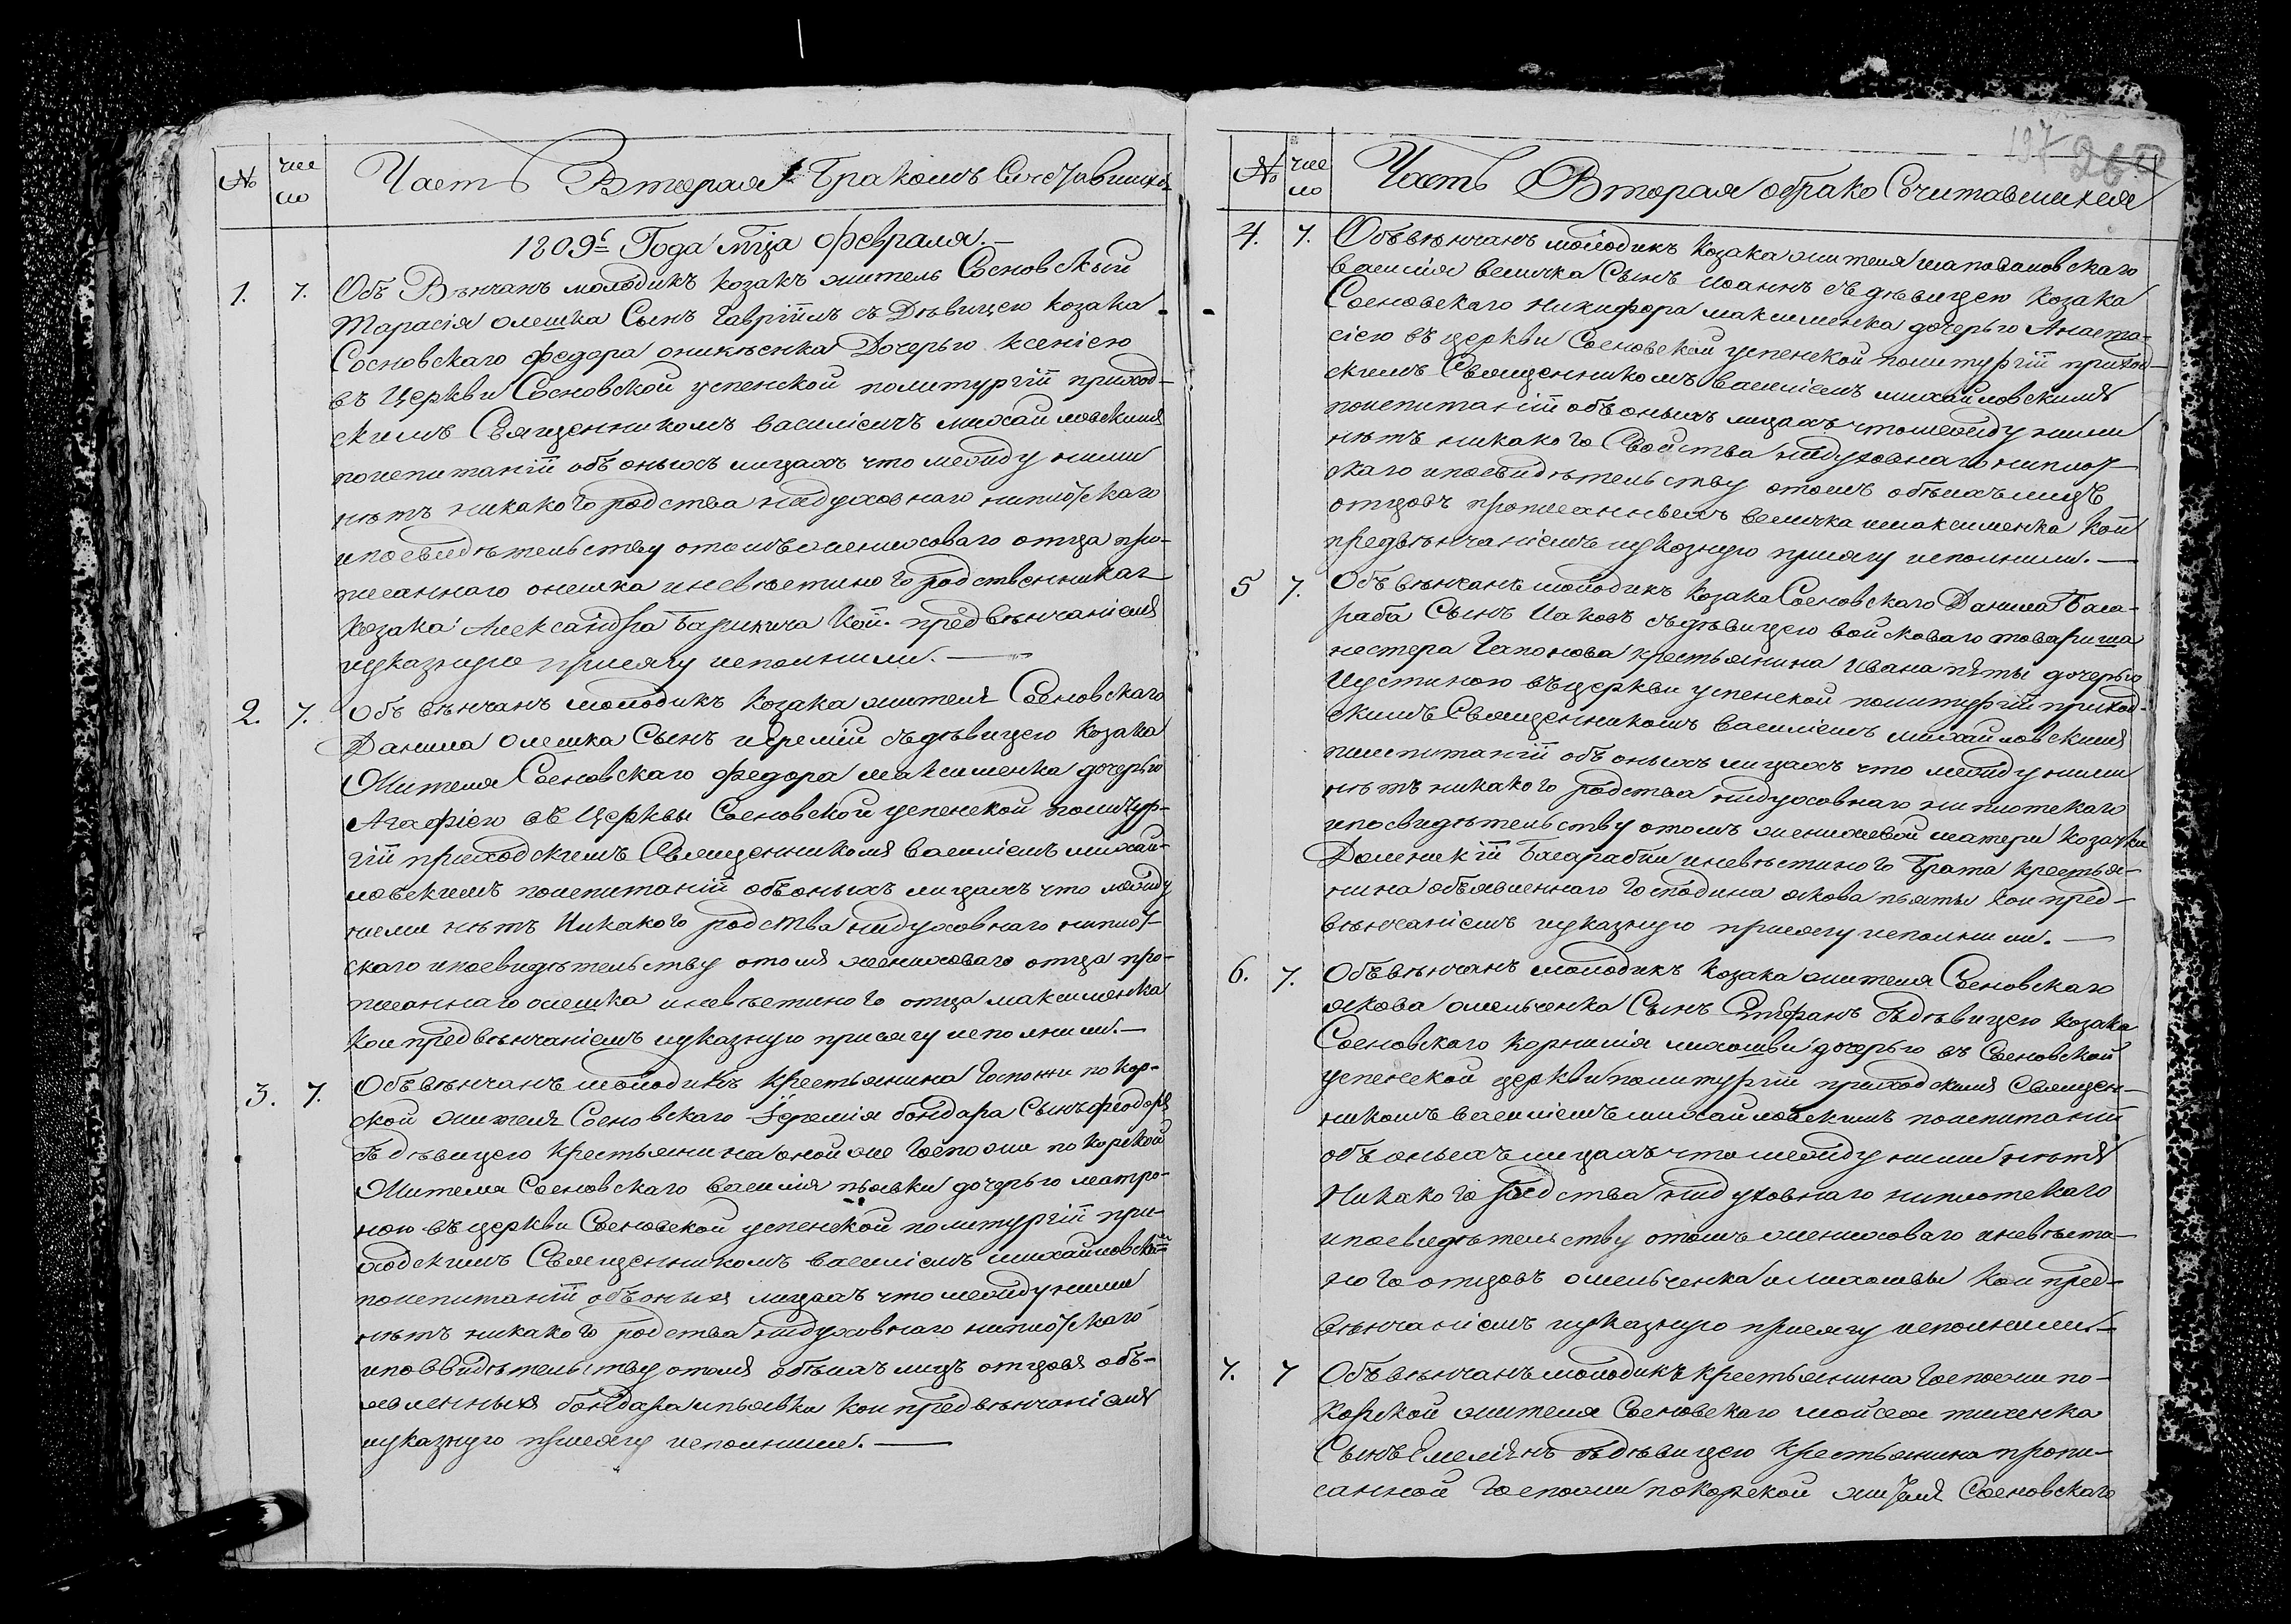 № чис
ло
Часть Вторая Бракомъ Сочетавшихся
1809г Года мца февраля.
1. 7. Объ Вѣнчанъ молодикъ козакъ житель Сосновский
Тарасія олешка Сынъ Гавріилъ съ Дѣвицею козака
Сосновскаго федора оникѣенка Дочерью ксеніею
въ Церкви Сосновской успенской політургіи приход-
скимъ Священникомъ василіемъ михайловскимъ
поиспитаніи объ оныхъ лицахъ что между ними
нѣтъ никакого родства нидуховнаго ниплотскаго
ипосвидѣтельству отомъ жениховаго отца про-
писаннаго олешка иневѣстиного родственника
козака Александра кои предвѣнчаніемъ
иуказную присягу исполнили.
2. 7. Объ вѣнчанъ молодикъ козака жителя Сосновскаго
Данила олешка Сынъ иеремій съдѣвицею козака
Жителя Сосновскаго федора максименка дочерью
Агафіею въ Церквы Сосновской успенской политур-
гіи приходскимъ Священникомъ василіемъ михай-
ловскимъ поиспитаніи объоныхъ лицахъ что между
ними нѣтъ Никакого родства нидуховнаго ниплот-
скаго ипосвидѣтельству отомъ жениховаго отца про-
писаннаго олешка иневѣстиного отца максименка
кои предвѣнчаніемъ иуказную присягу исполнили.
3. 7. Объвѣнчанъ молодикъ крестьянина Госпожи покор-
ской жителя Сосновскаго Іеремія бондара Сынъ феодоръ
съдѣвицею крестьянина оной же Госпожи покорской
Жителя Сосновскаго василія пьявки дочерью матро-
ною въ церкви Сосновской успенской политургіи при-
ходскимъ Священникомъ василіемъ михайловскимъ
поиспитаніи объоныхъ лицахъ что между ними
нѣтъ никакого родства нидуховнаго ниплотскаго
ипосвидѣтельству отомъ обѣихъ лицъ отцовъ объ-
явленныхъ бондара ипьявки кои предвѣнчаніемъ
иуказную присягу исполнили.
197 26
№ чис
ло
Часть Вторая обрако Сочитавшихся
4. 7. Объвѣнчанъ молодикъ козака жителя шаповаловскаго
василія величка Сынъ иоаннъ съдѣвицею козака
Сосновскаго никифора максименка дочерью Анаста-
сіею въ церкви Сосновской успенской политургіи приход-
скимъ Священникомъ василіемъ михайловскимъ
поиспитаніи объ оныхъ лицахъ что между ними
нѣтъ никакого Свойства нидуховнаго ниплот-
скаго ипосвидѣтельству отомъ обѣихъ лицъ
отцовъ прописанныхъ величка имаксименка кои
предвѣнчаніемъ иуказную присягу исполнили.
5 7. Объ вѣнчанъ молодикъ козака Сосновскаго Данила Баса-
раба Сынъ Иаковъ съдѣвицею войсковаго товариша
нестера Гапонова крестьянина Ивана пяты дочерью
Иустиною въцеркви успенской политургіи приход-
скимъ Священникомъ василіемъ михайловскимъ
поиспитаніи объ оныхъ лицахъ что между ними
нѣтъ никакого родства нидуховнаго ниплотскаго
ипосвидѣтельству отомъ жениховой матери козачки
Доменикіи Басарабки иневѣстиного Брата крестья-
нина объявленнаго Господина якова пьяты кои пред-
вѣнчаніемъ иуказную присягу исполнили.
6. 7. Объвѣнчанъ молодикъ козака жителя Сосновскаго
якова омельченка Сынъ Стефанъ съдѣвицею козака
Сосновскаго корнилія михошви дочерью въ Сосновской
успенской церкви политургіи приходскимъ Священ-
никомъ василіемъ михайловскимъ поиспитаніи
объ оныхъ лицахъ что между ними нѣтъ
Никакого родства нидуховнаго ниплотскаго
ипосвидѣтельству отомъ жениховаго иневѣсти-
ного отцовъ омельченка имихошвы кои пред-
вѣнчаніемъ иуказную присягу исполнили.
7. 7 Объвѣнчанъ молодикъ крестьянина Госпожи по-
корской жителя Сосновскаго мойсея тихенка
Сынъ Емеліянъ съдѣвицею крестьянина пропи-
санной Госпожи покорской жителя Сосновскаго